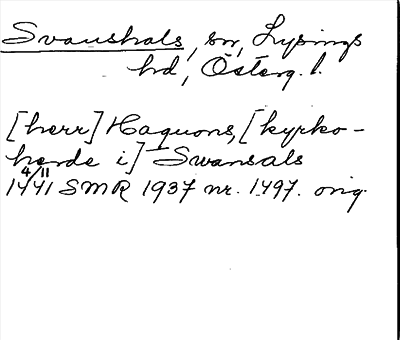 Svanshals, sn, Lysings
hd, Österg. l.
[herr] Haquons, [kyrko-
herde i] Swansals
1441 4/11 SMR 1937 nr. 1497. orig.